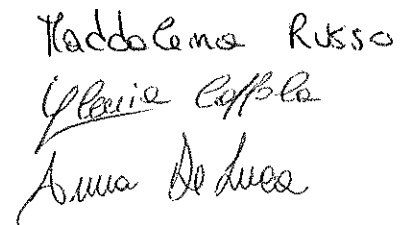 Maddalena Russo
Ylenia Coppola
Anna De Luca